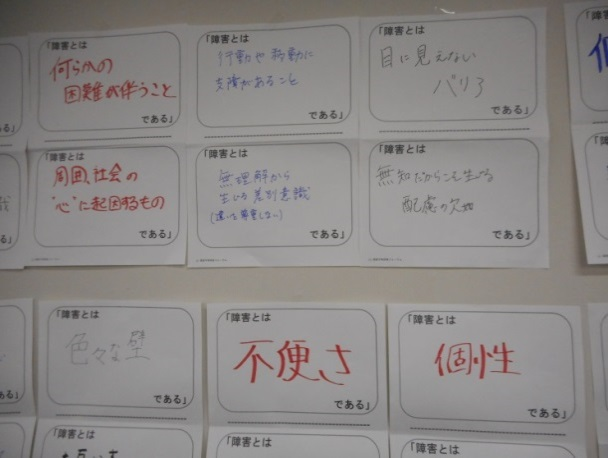 「障害とは
何らかの
困難が伴うこと
である」
「障害とは
行動や移動に
支障があること
である」
「障害とは
目に見えない
バリア
である」
「障害とは
周囲、社会の
"心"に起因するもの
である」
「障害とは
無理解から
生じる差別意識
である」
「障害とは
無知だからこそ生じる
配慮の欠如
である」
「障害とは
色々な壁
である」
「障害とは
不便さ
である」
「障害とは
個性
である」
「障害とは
「障害とは
「障害とは
ある」
る」